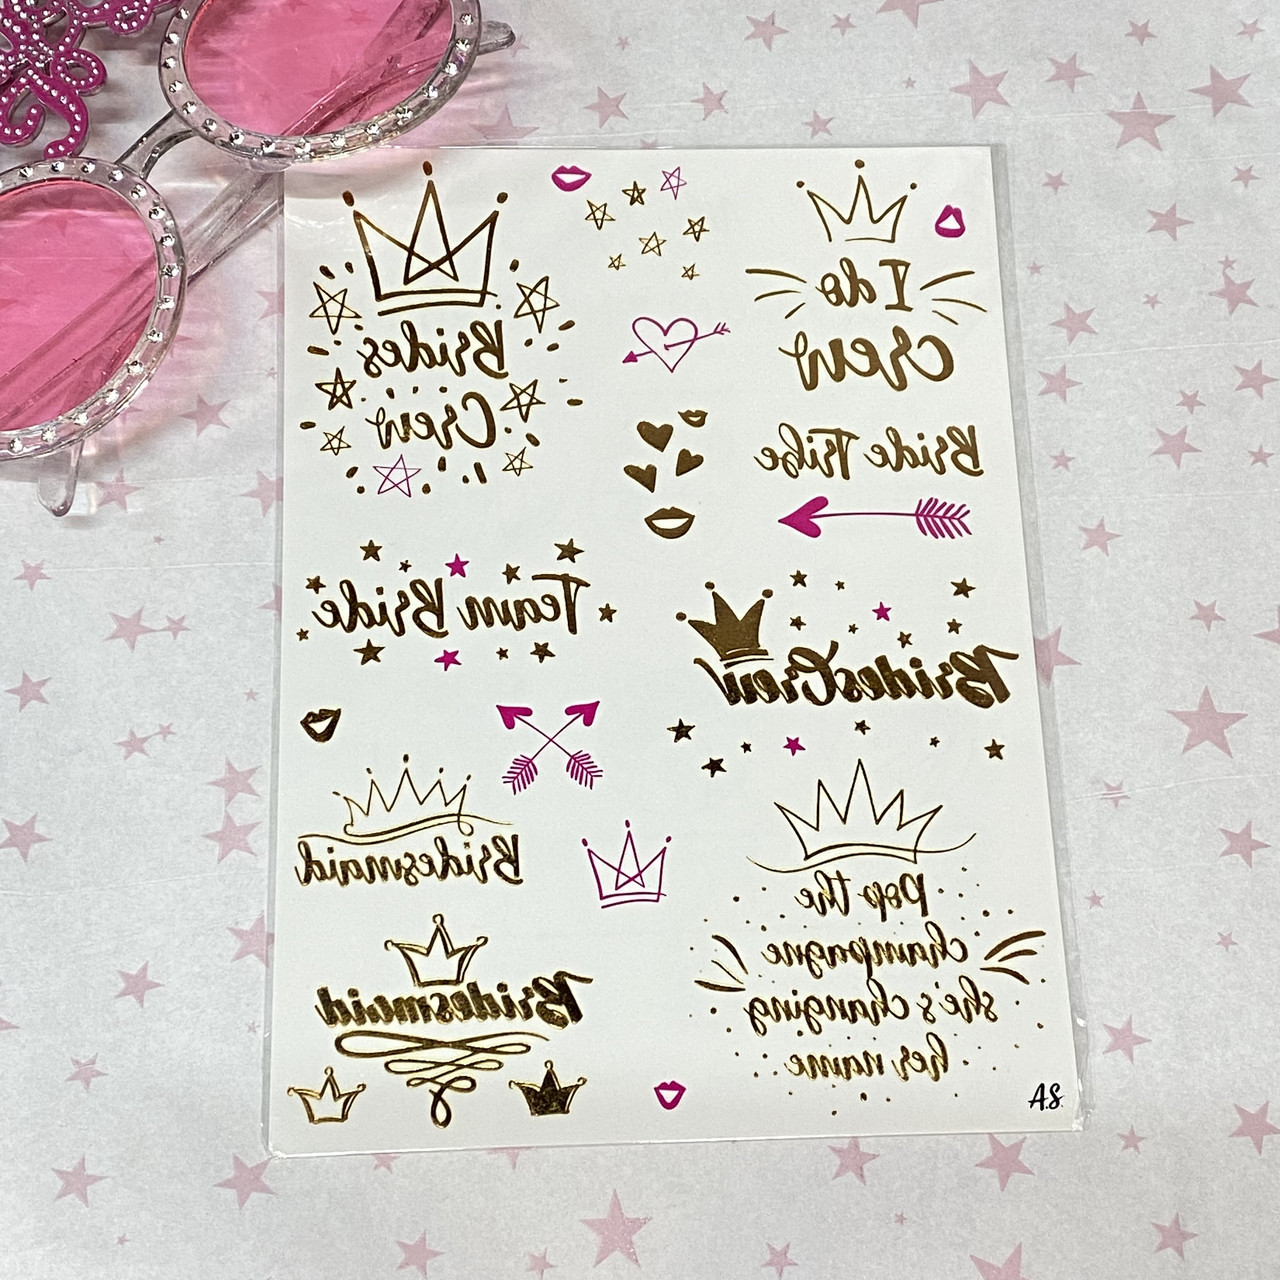 Brides
Crew
I do
crew
Bride Tribe
Team Bride
BridesCrew
Bridesmaid
Pop the
champagne
she's changing
her name
Bridesmaid
A.S.